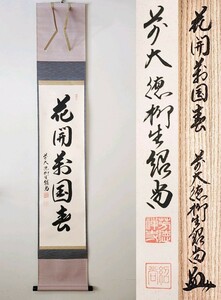 花開萬国春
前大徳柳生紹尚
前大徳柳生紹尚
花開萬国春
前大徳柳生紹尚